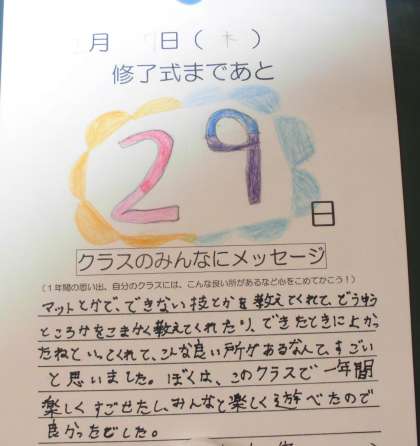 月 日（木）
修了式まであと
29
日
クラスのみんなにメッセージ
（1年間の思い出、自分のクラスには、こんな良い所があるなど心をこめてかこう！）
マットとかで、できない技とかを教えてくれて、どうゆう
ところかをこまかく教えてくれたり、できたときに上かっ
たねといってくれて、こんな良い所があるなんて、すごい
と思いました。ぼくは、このクラスで一年間
楽しくすごせたし、みんなと楽しく遊べたので
良かったでした。